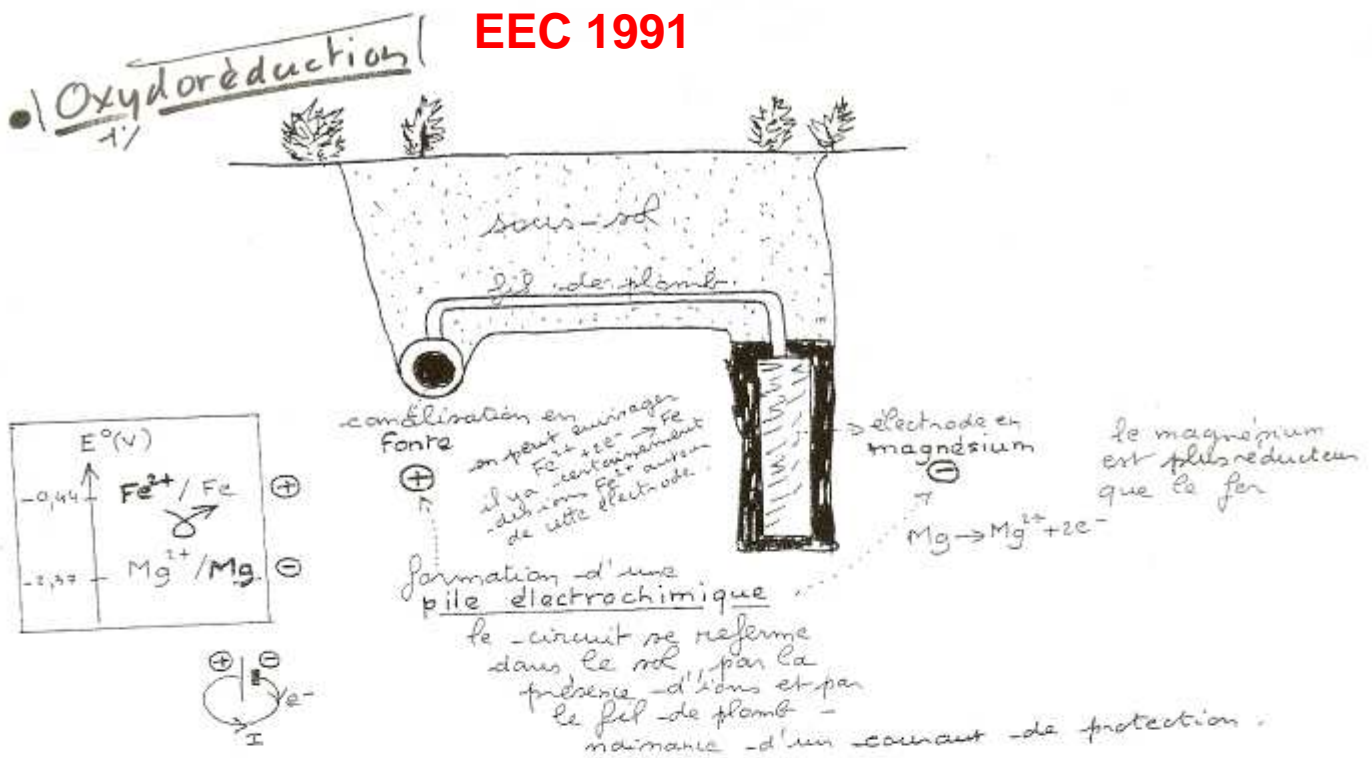 EEC 1991
Oxydoréduction
1/
sous-sol
fil de plomb
canalisation en
fonte
⊕
on peut envisager
Fe²⁺ + 2e⁻ → Fe
il y a certainement
des ions Fe²⁺ autour
de cette électrode.
électrode en
magnésium
⊖
Mg → Mg²⁺ + 2e⁻
le magnésium
est plus réducteur
que le fer
E°(V)
-0,44 Fe²⁺ / Fe ⊕
-2,37 Mg²⁺ / Mg ⊖
formation d'une
pile électrochimique
le circuit se referme
dans le sol, par la
présence d'ions et par
le fil de plomb -
naissance d'un courant de protection.
⊕ ⊖
e⁻
I